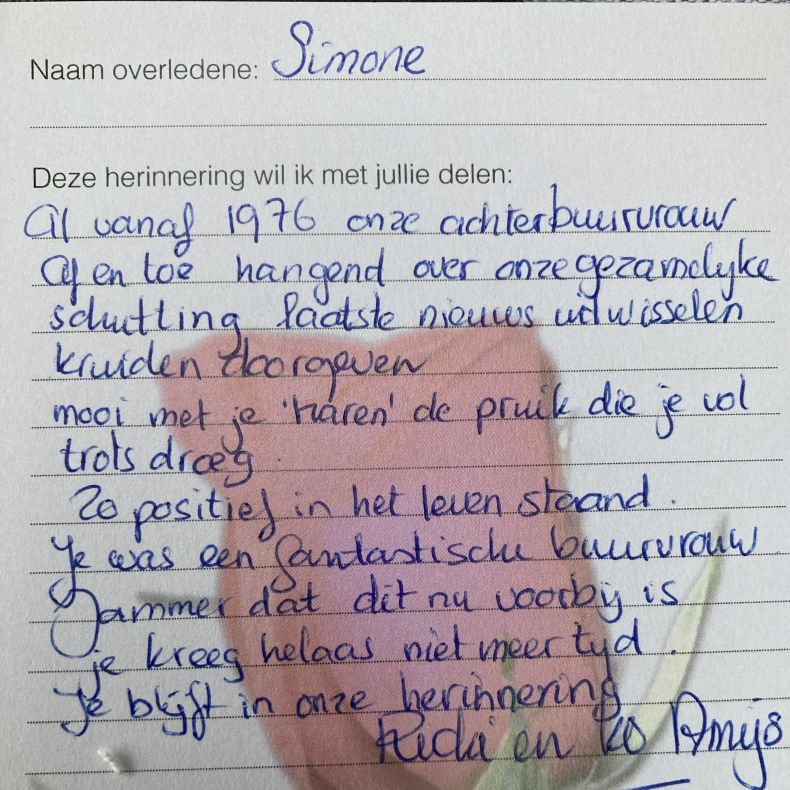 Naam overledene: Simone
Deze herinnering wil ik met jullie delen:
Al vanaf 1976 onze achterbuurvrouw
Af en toe hangend over onze gezamelyke
schutting laatste nieuws uitwisselen
kruiden doorgeven
mooi met je 'haren' de pruik die je vol
trots droeg.
Zo positief in het leven staand.
Je was een fantastische buurvrouw
Jammer dat dit nu voorbij is
je kreeg helaas niet meer tyd.
Je blijft in onze herinnering
en Ko